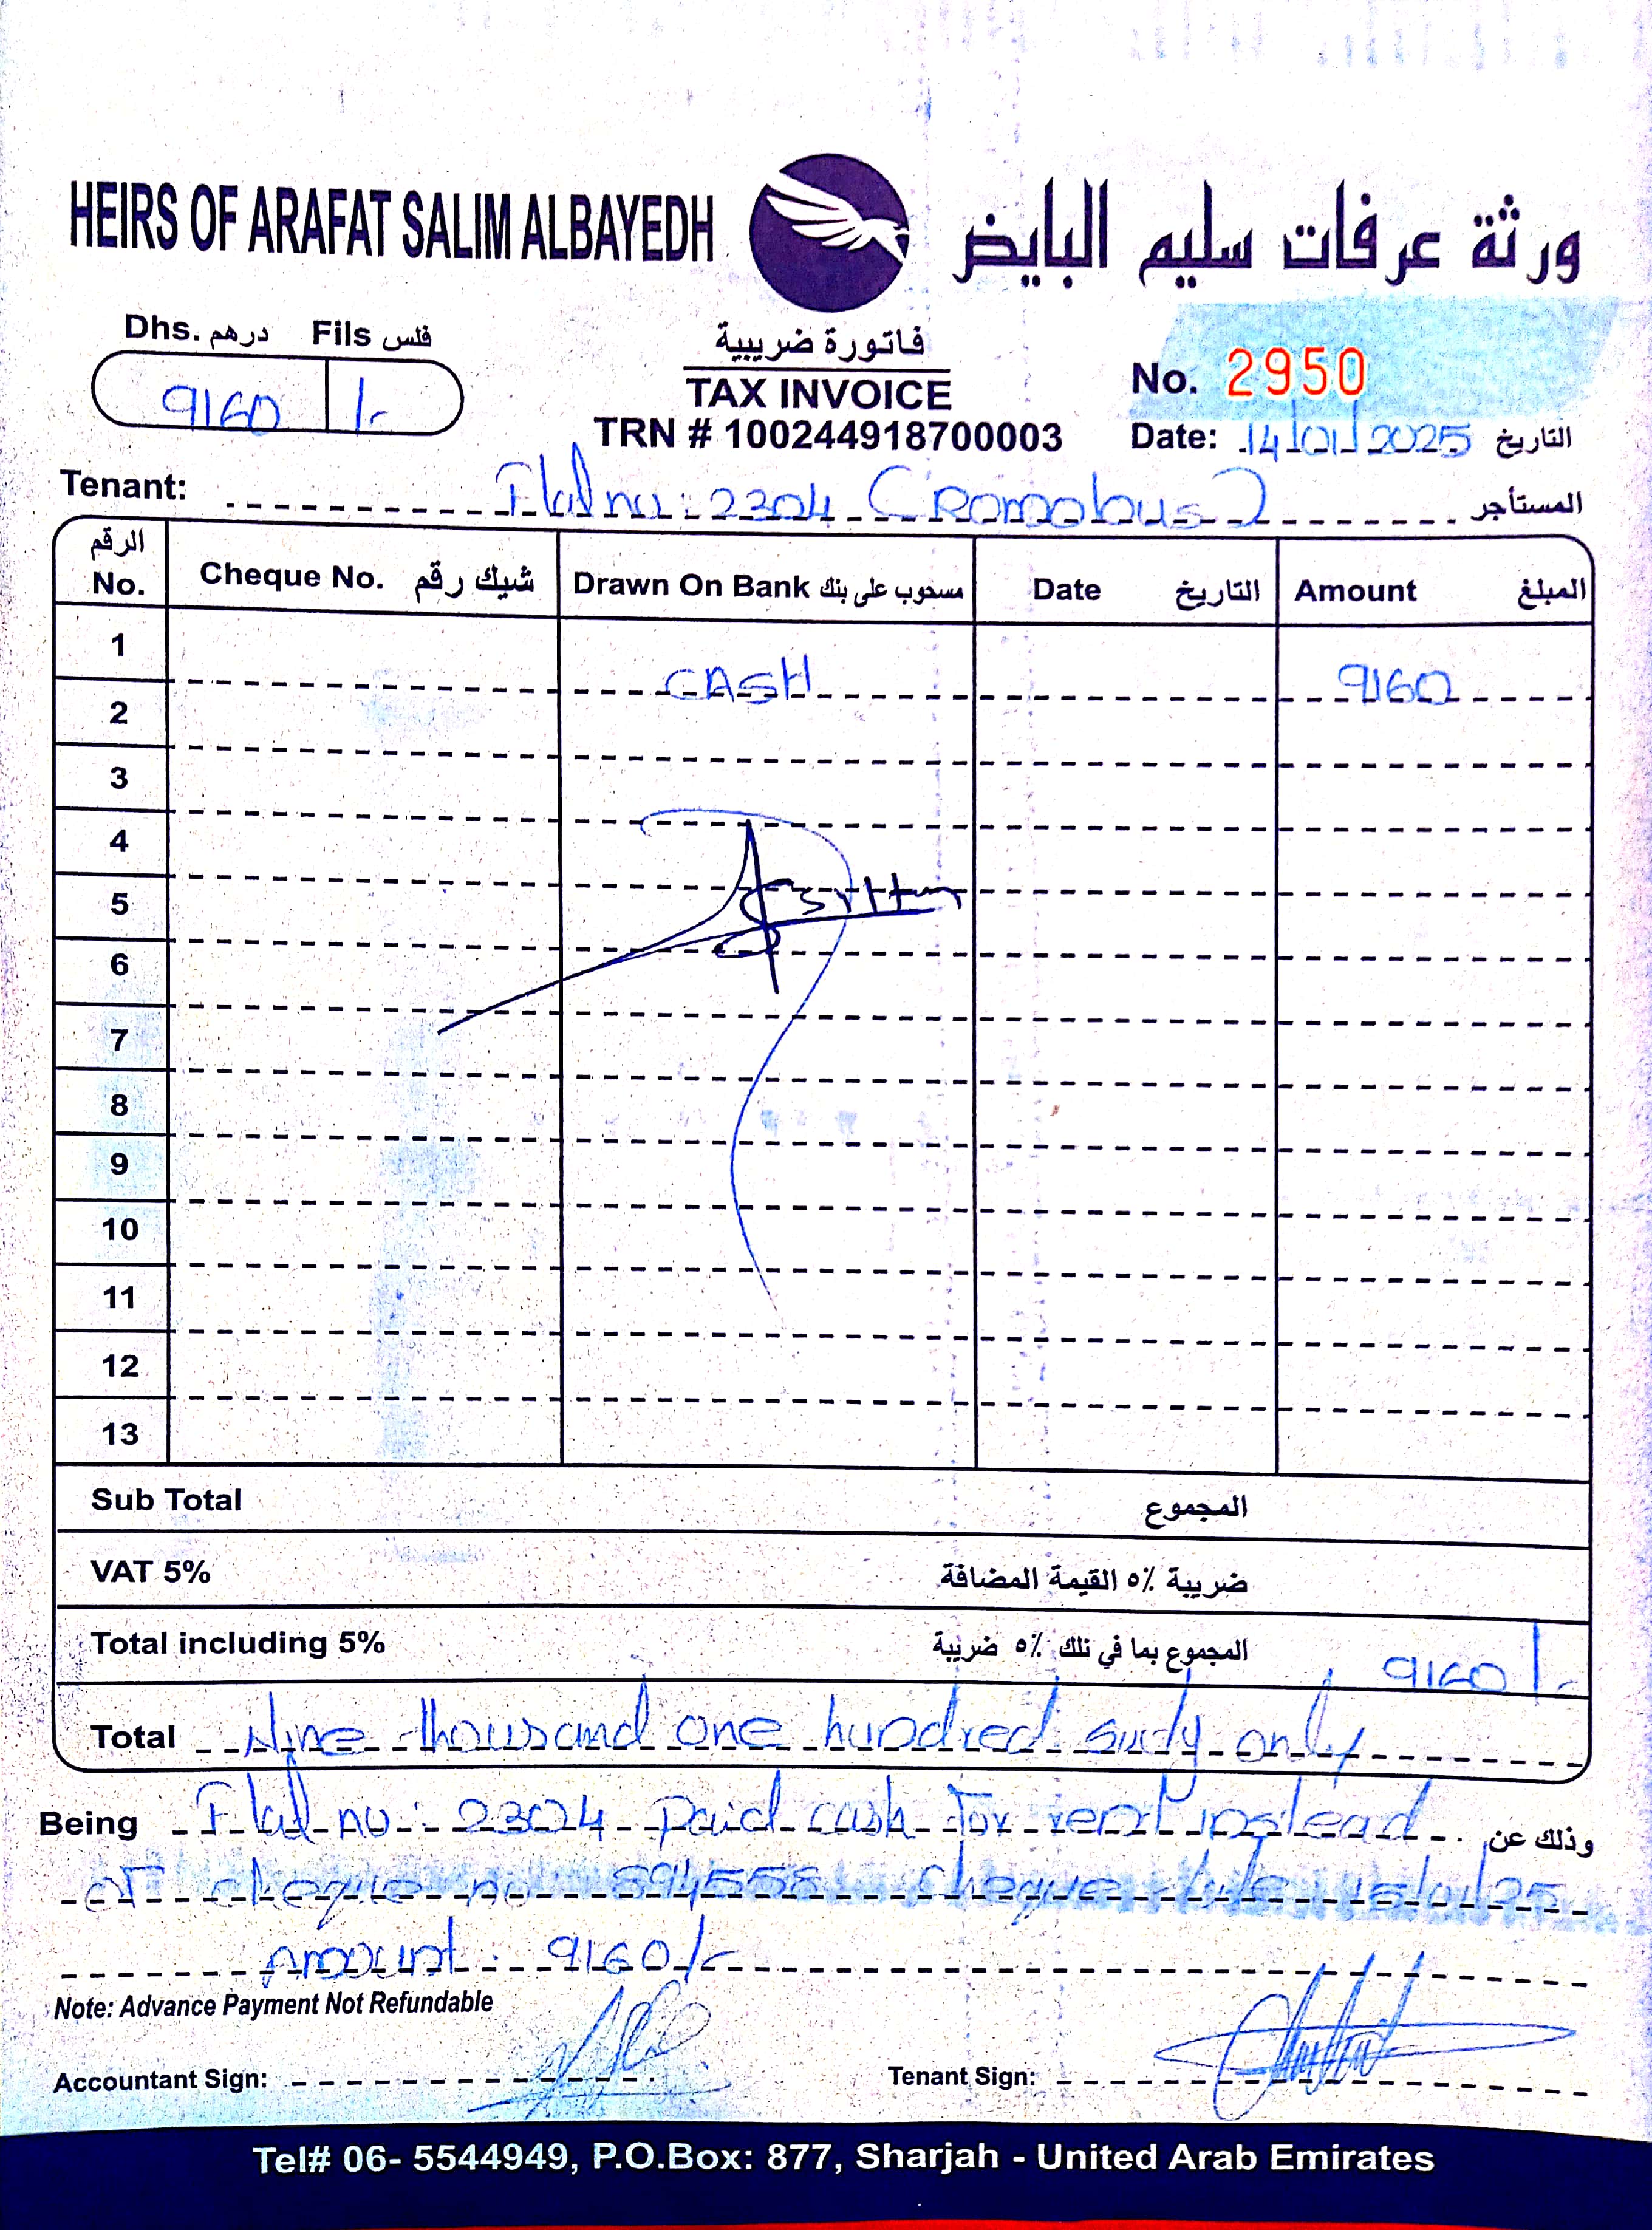 HEIRS OF ARAFAT SALIM ALBAYEDH ورثة عرفات سليم البايض
Dhs. درهم Fils فلس
9160 /-
فاتورة ضريبية
TAX INVOICE
TRN # 100244918700003
No. 2950
Date: 14/01/2025 التاريخ
Tenant: Flat no: 2304 المستأجر
الرقم No. Cheque No. شيك رقم Drawn On Bank مسحوب على بنك Date التاريخ Amount المبلغ
1 CASH 9160
2
3
4
5
6
7
8
9
10
11
12
13
Sub Total المجموع
VAT 5% ضريبة ٥٪ القيمة المضافة
Total including 5% المجموع بما في ذلك ٥٪ ضريبة 9160/-
Total Nine thousand one hundred sixty only
Being Flat no: 2304 Paid cash for rent instead وذلك عن
of cheque no 594558 cheque date 15/01/25
Amount: 9160/-
Note: Advance Payment Not Refundable
Accountant Sign: Tenant Sign:
Tel# 06- 5544949, P.O.Box: 877, Sharjah - United Arab Emirates